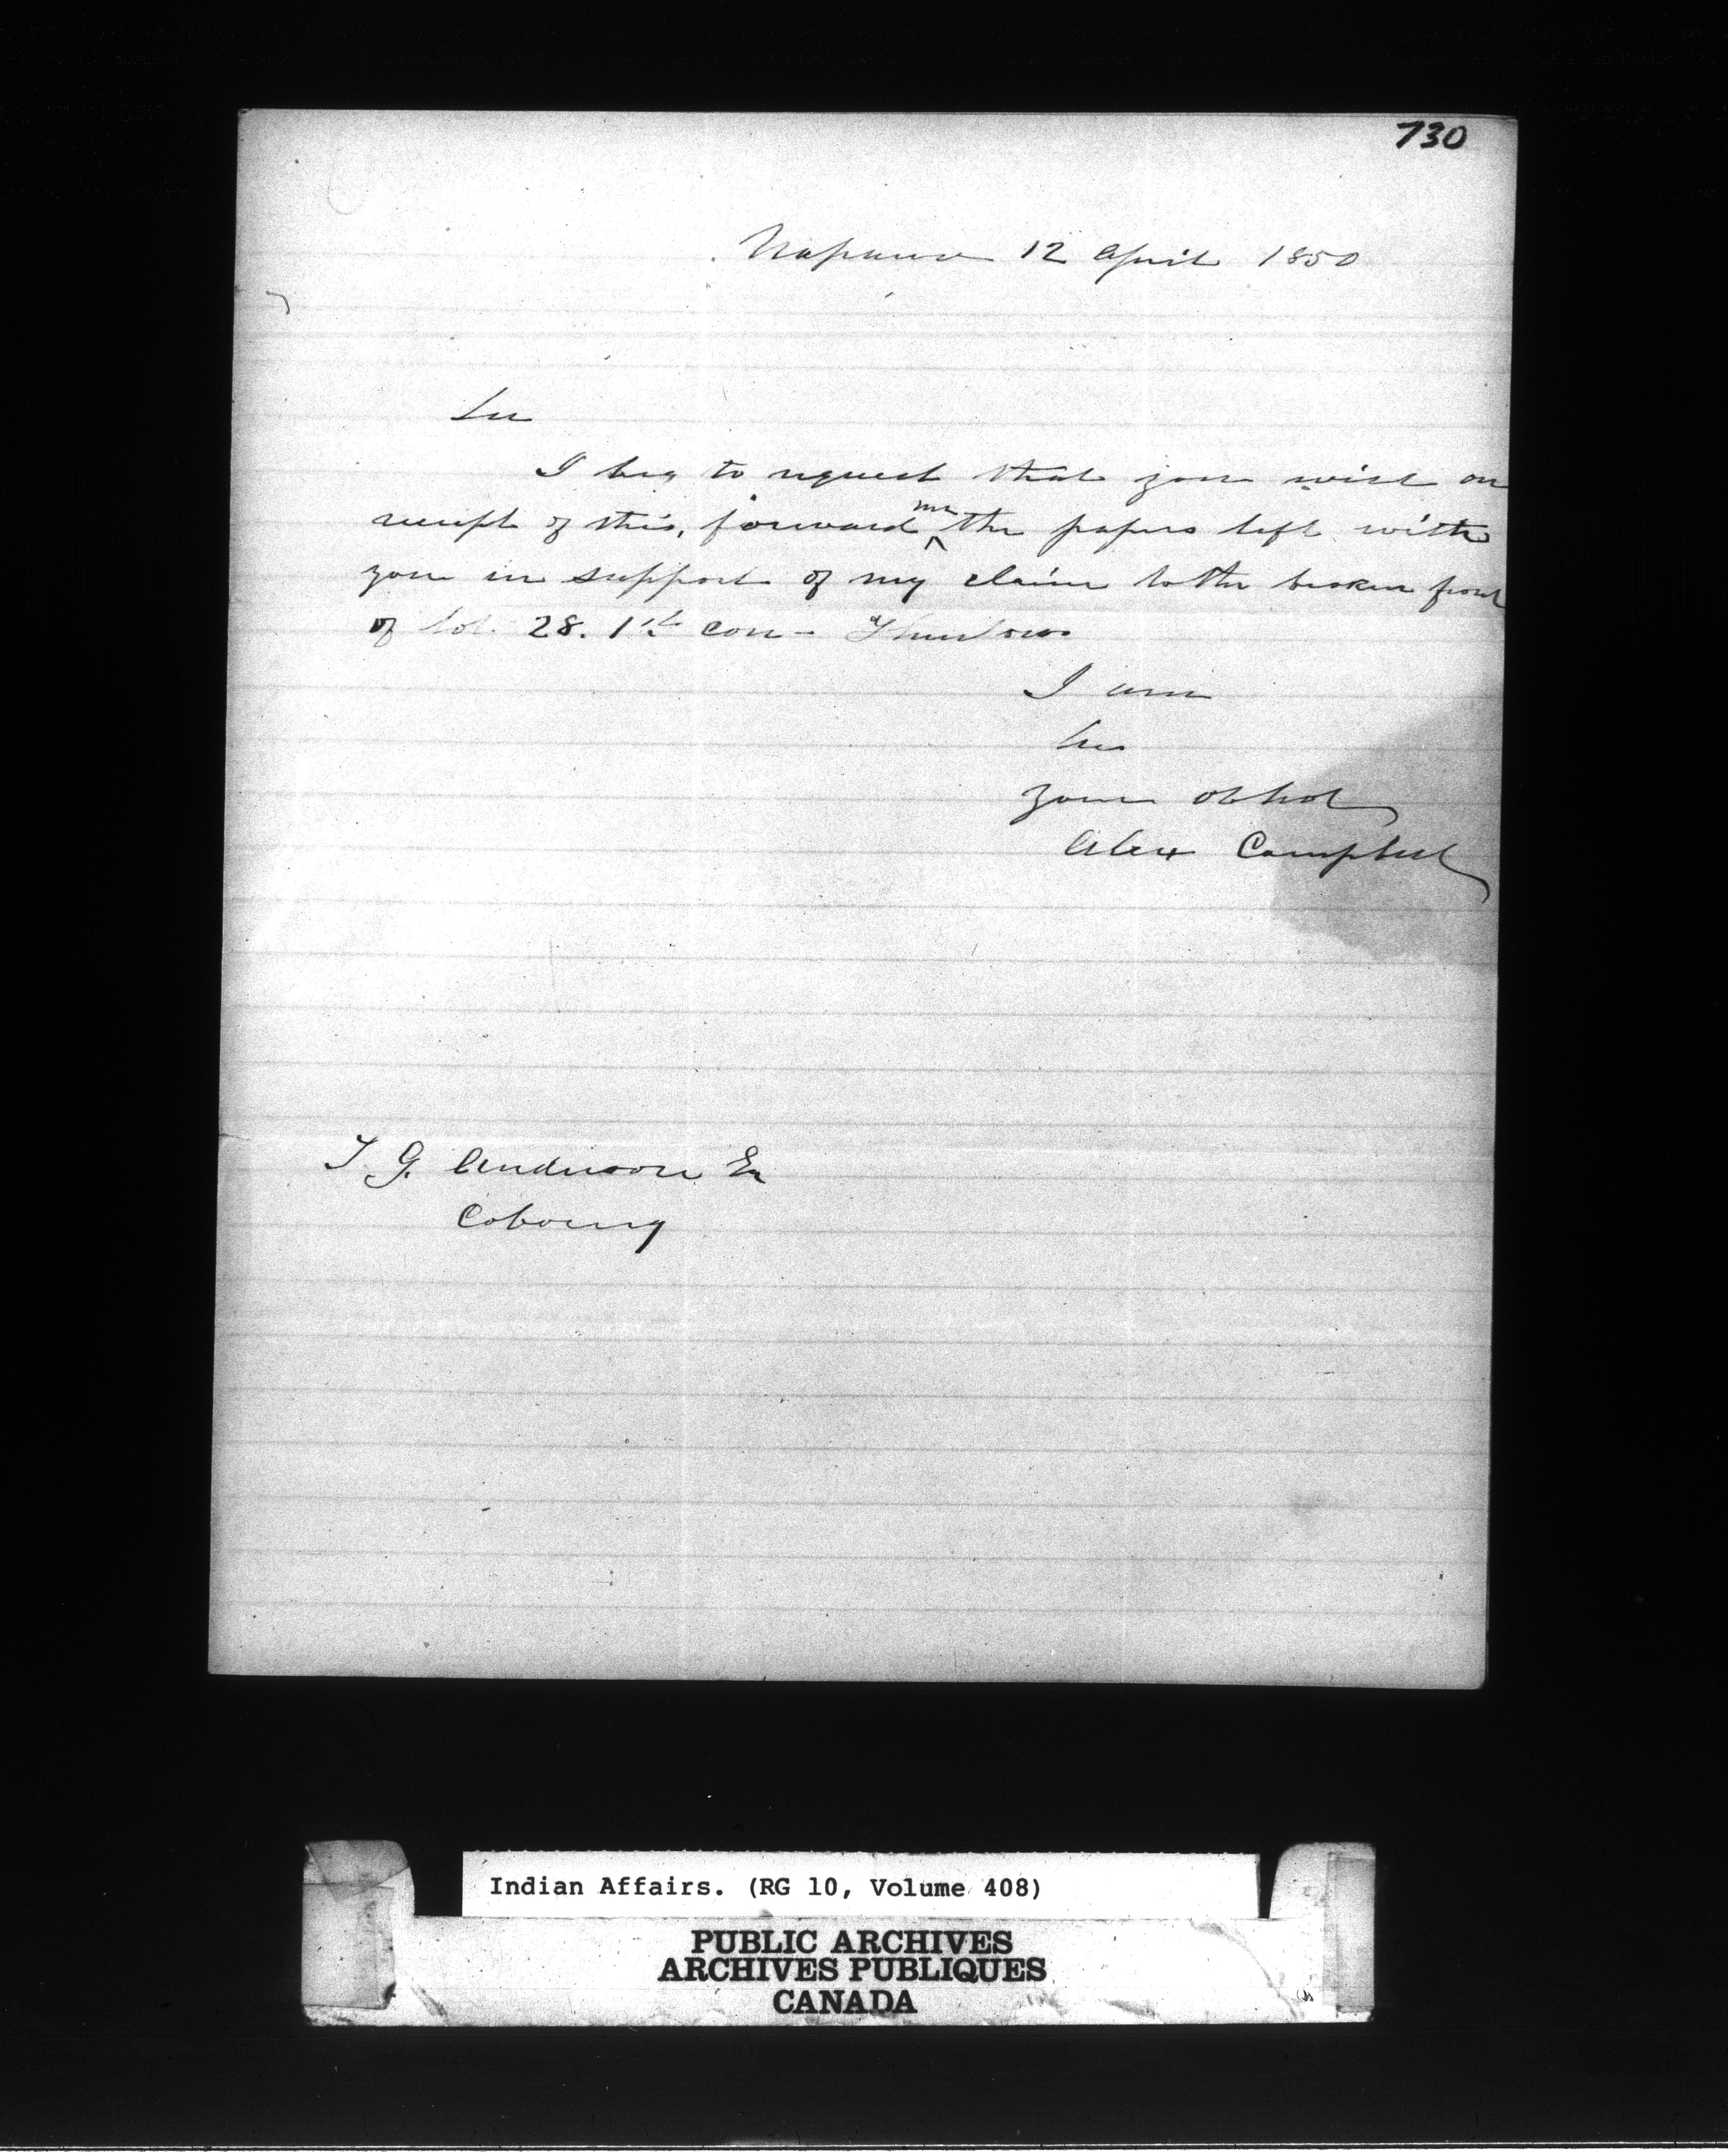 730
Napanee 12 April 1850
Sir
I beg to request that you will on
receipt of this, forward me the papers left with
you in support of my claim to the broken front
of lot 28. 1st Con - Thurlow
I am
Sir
Your obt
Alex Campbell
T G. Anderson Es
Cobourg
Indian Affairs. (RG 10, Volume 408)
PUBLIC ARCHIVES
ARCHIVES PUBLIQUES
CANADA